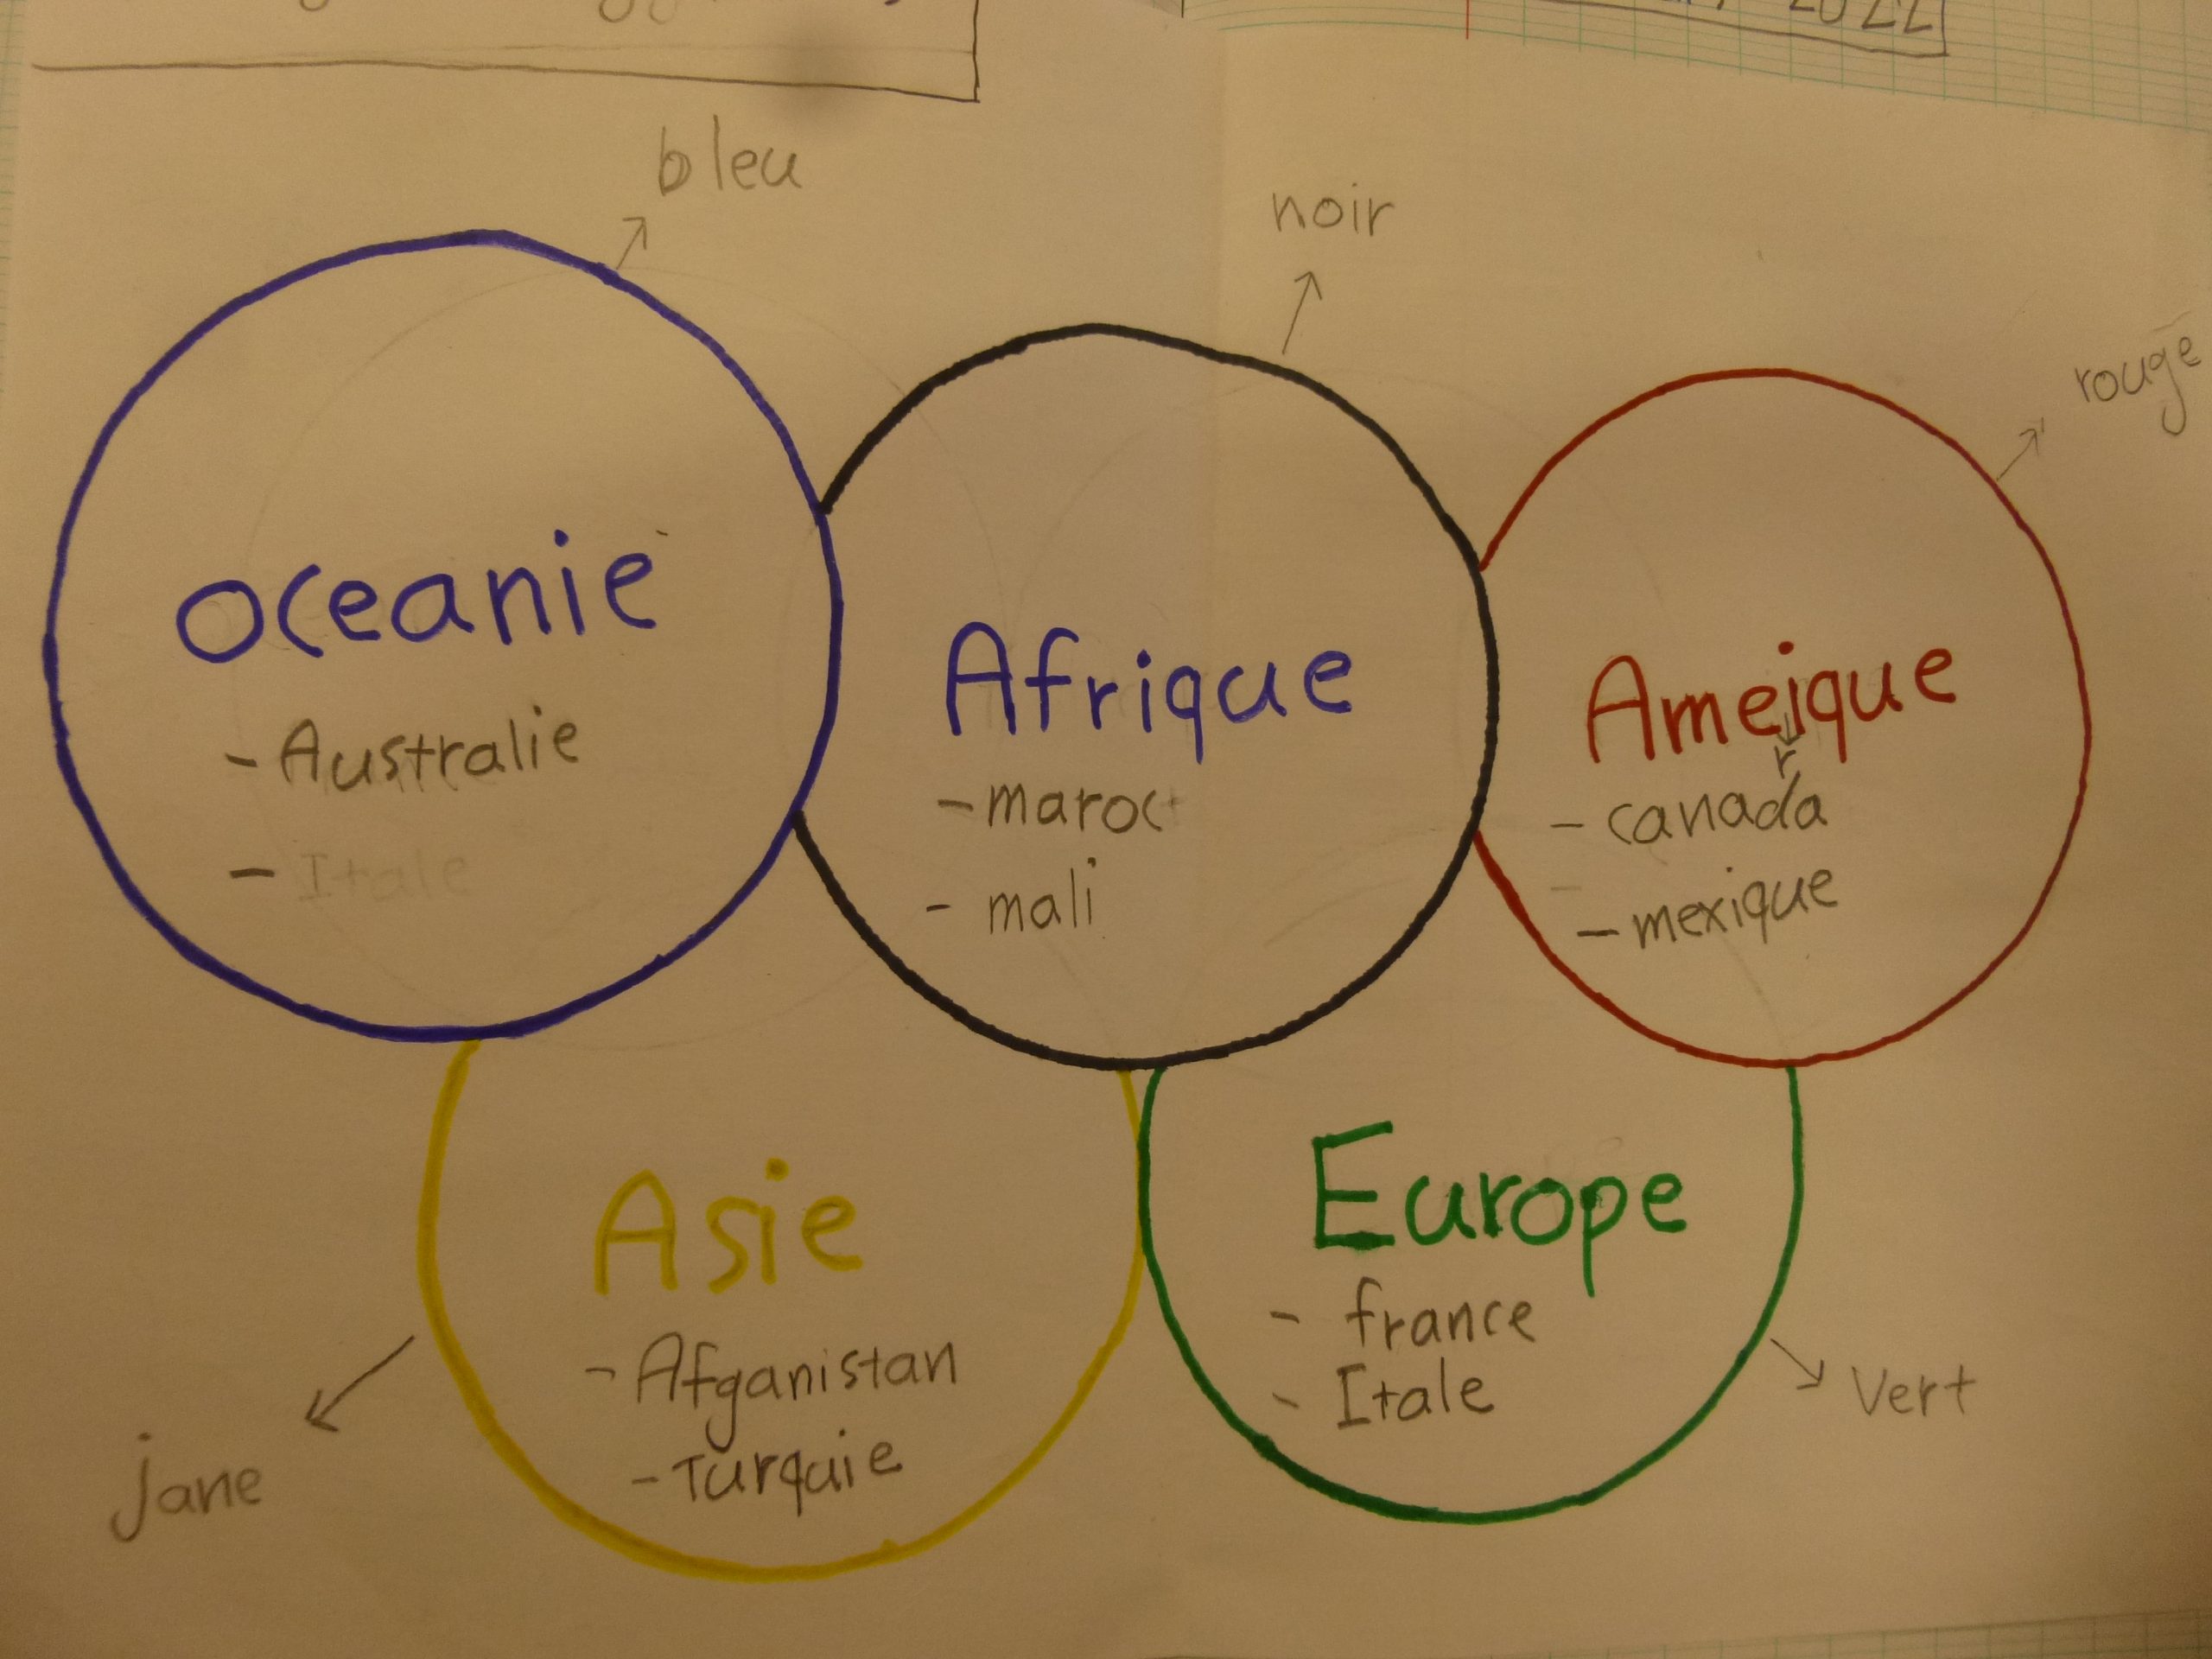 2022
bleu
noir
rouge
oceanie
- Australie
- Itale
Afrique
- maroc
- mali
Ameique
r
- canada
- mexique
Asie
- Afganistan
- Turquie
jane
Europe
- france
- Itale
Vert